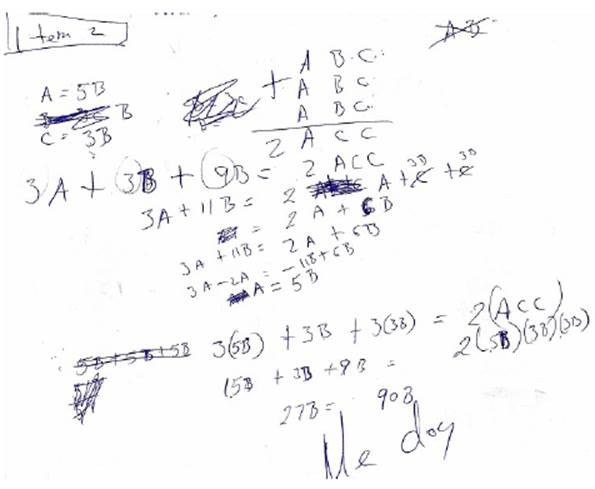 Item 2
A = 5B
C = 3B
A B C
+ A B C
A B C
2 A C C
3A + 3B + 9B = 2 ACC
3A + 11B = 2 A + 3B + 3B
= 2 A + 6B
3A + 11B = 2A + 6B
3A - 2A = -11B + 6B
A = 5B
5B + 5B + 5B
3(5B) + 3B + 3(3B) = 2(ACC)
15B + 3B + 9B = 2(5B)(3B)(3B)
27B = 90B
Me doy